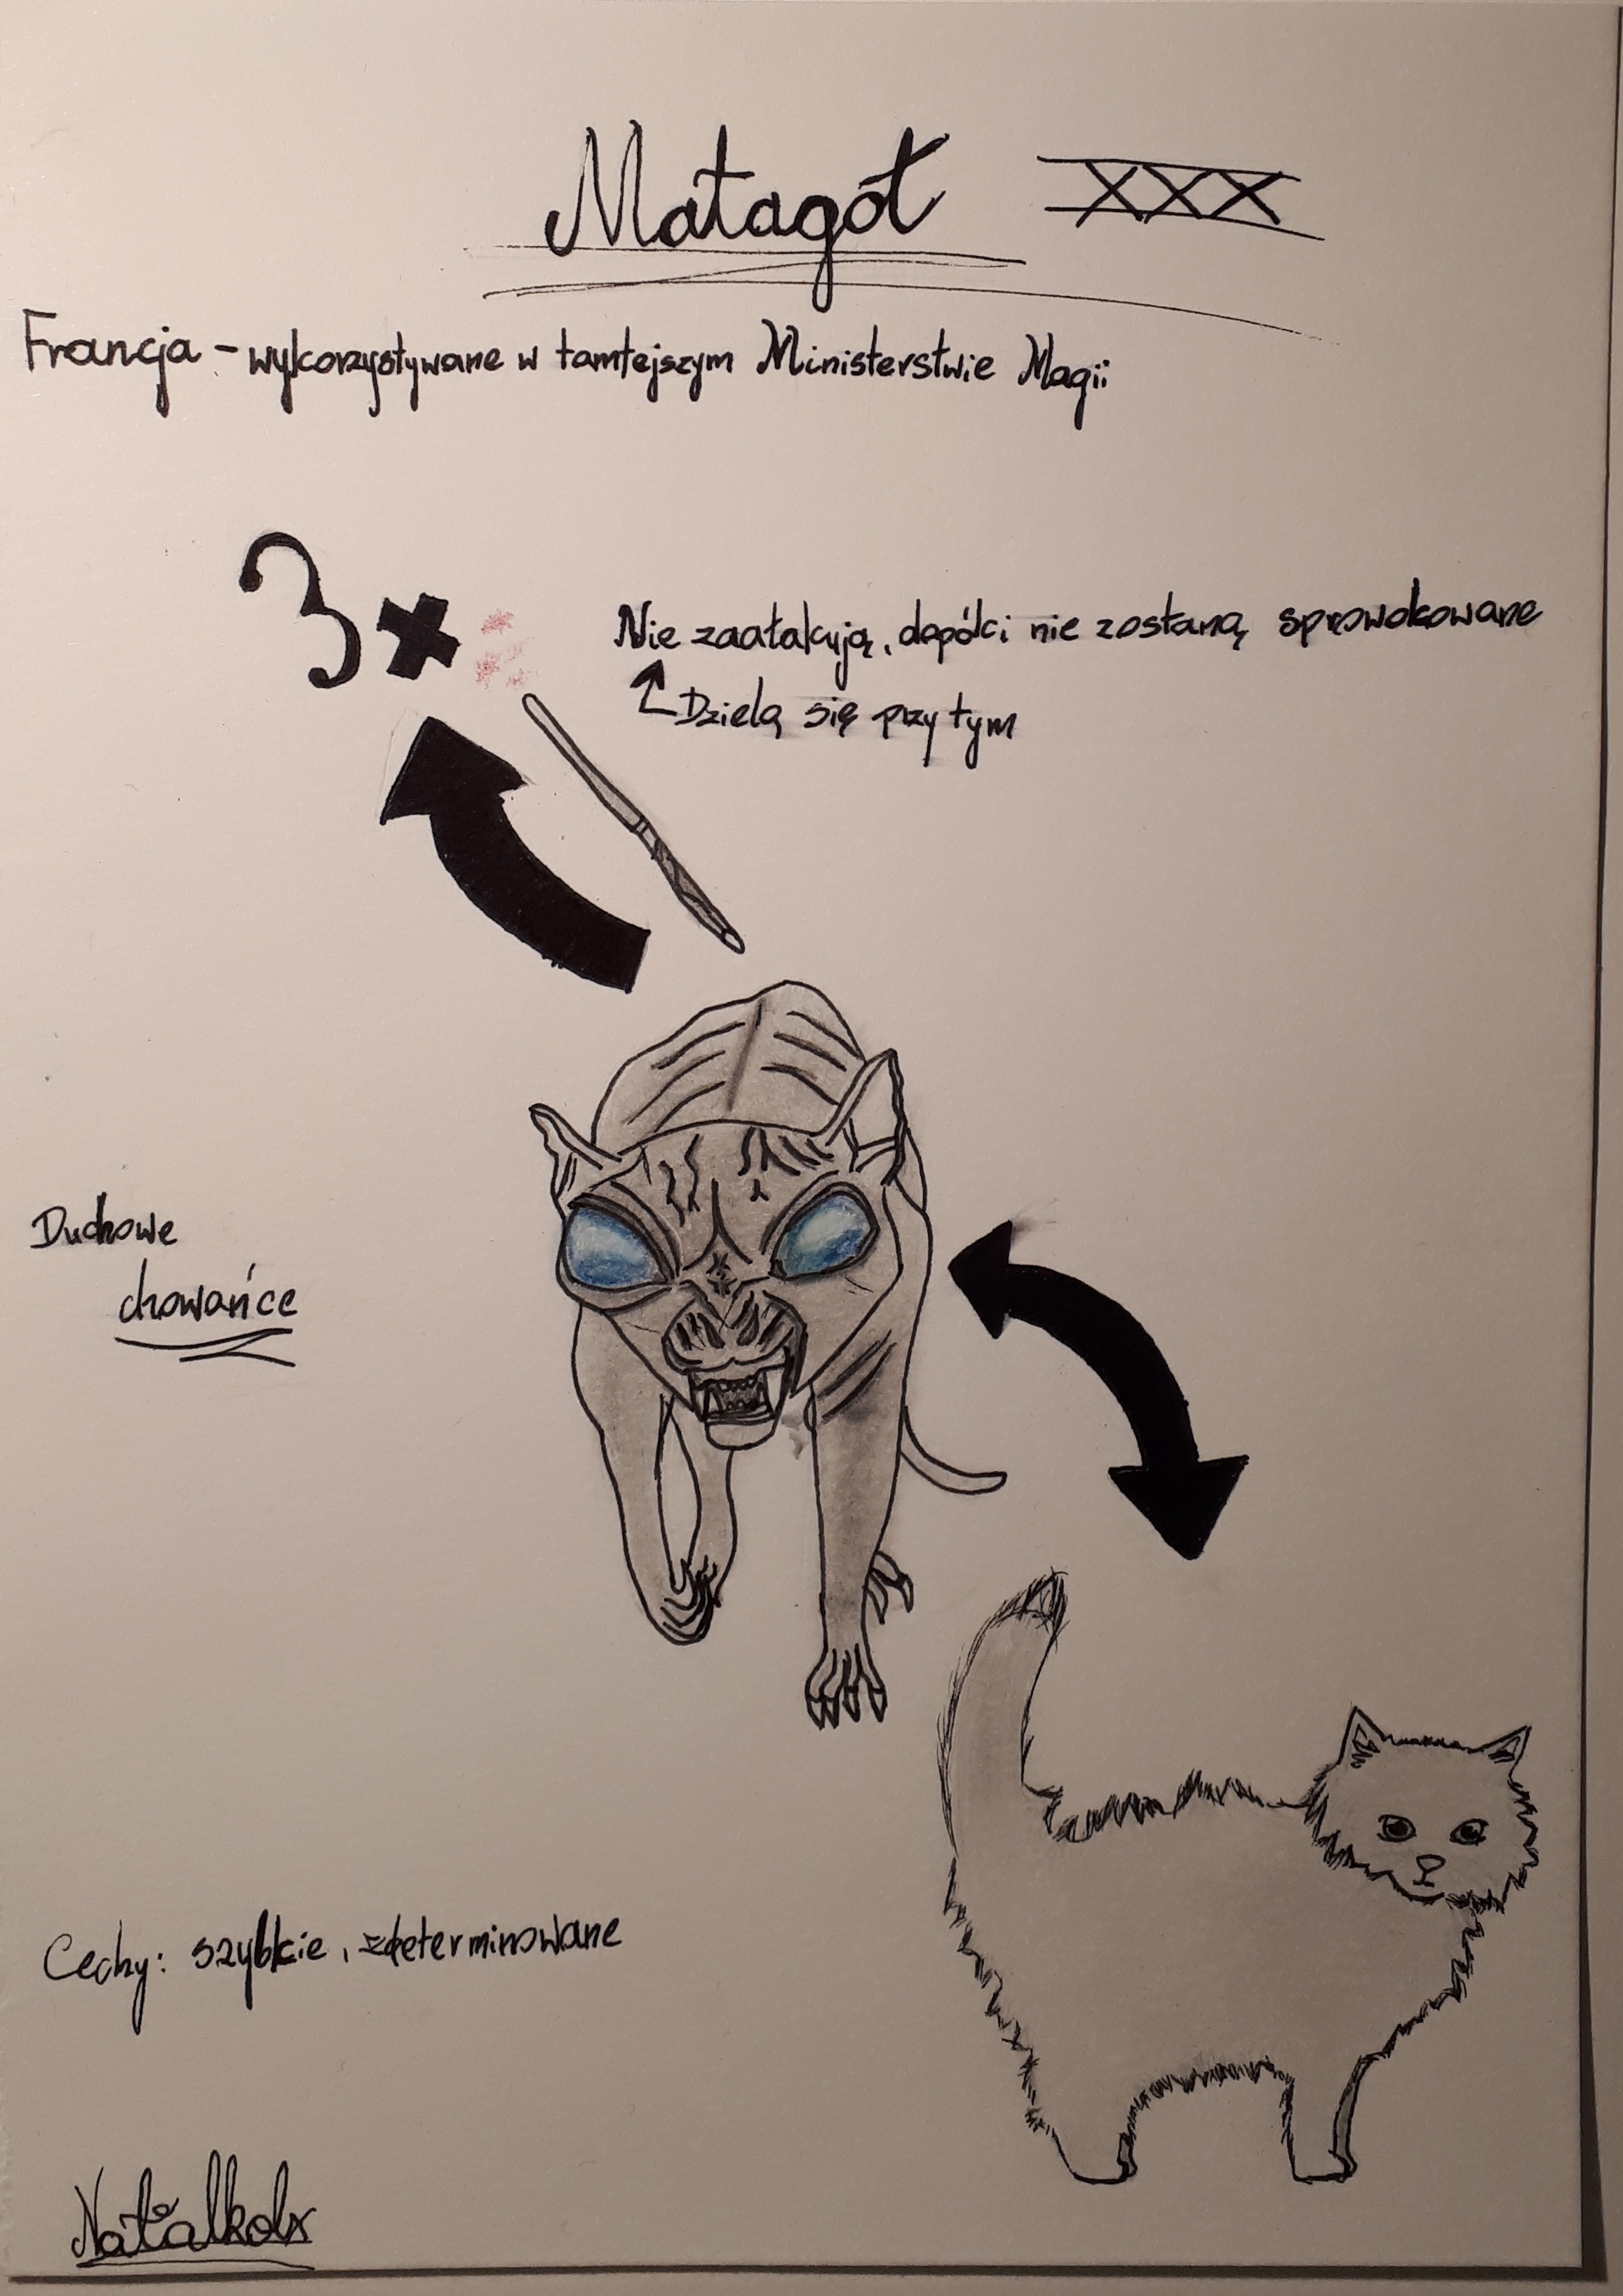 Matagot XXX
Francja - wykorzystywane w tamtejszym Ministerstwie Magii
3x
Nie zaatakują, dopóki nie zostaną sprowokowane
Dzielą się przy tym
Duchowe
chowańce
Cechy: szybkie, zdeterminowane